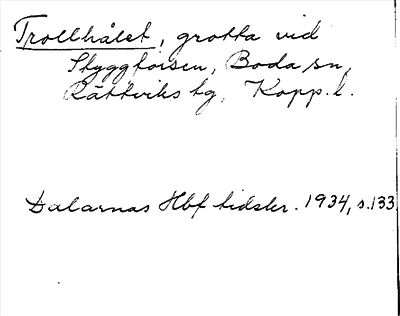 Trollhålet, grotta vid
Styggforsen, Boda sn,
Rättviks tg, Kopp. l.
Dalarnas Hbf tidskr. 1934, s. 133.